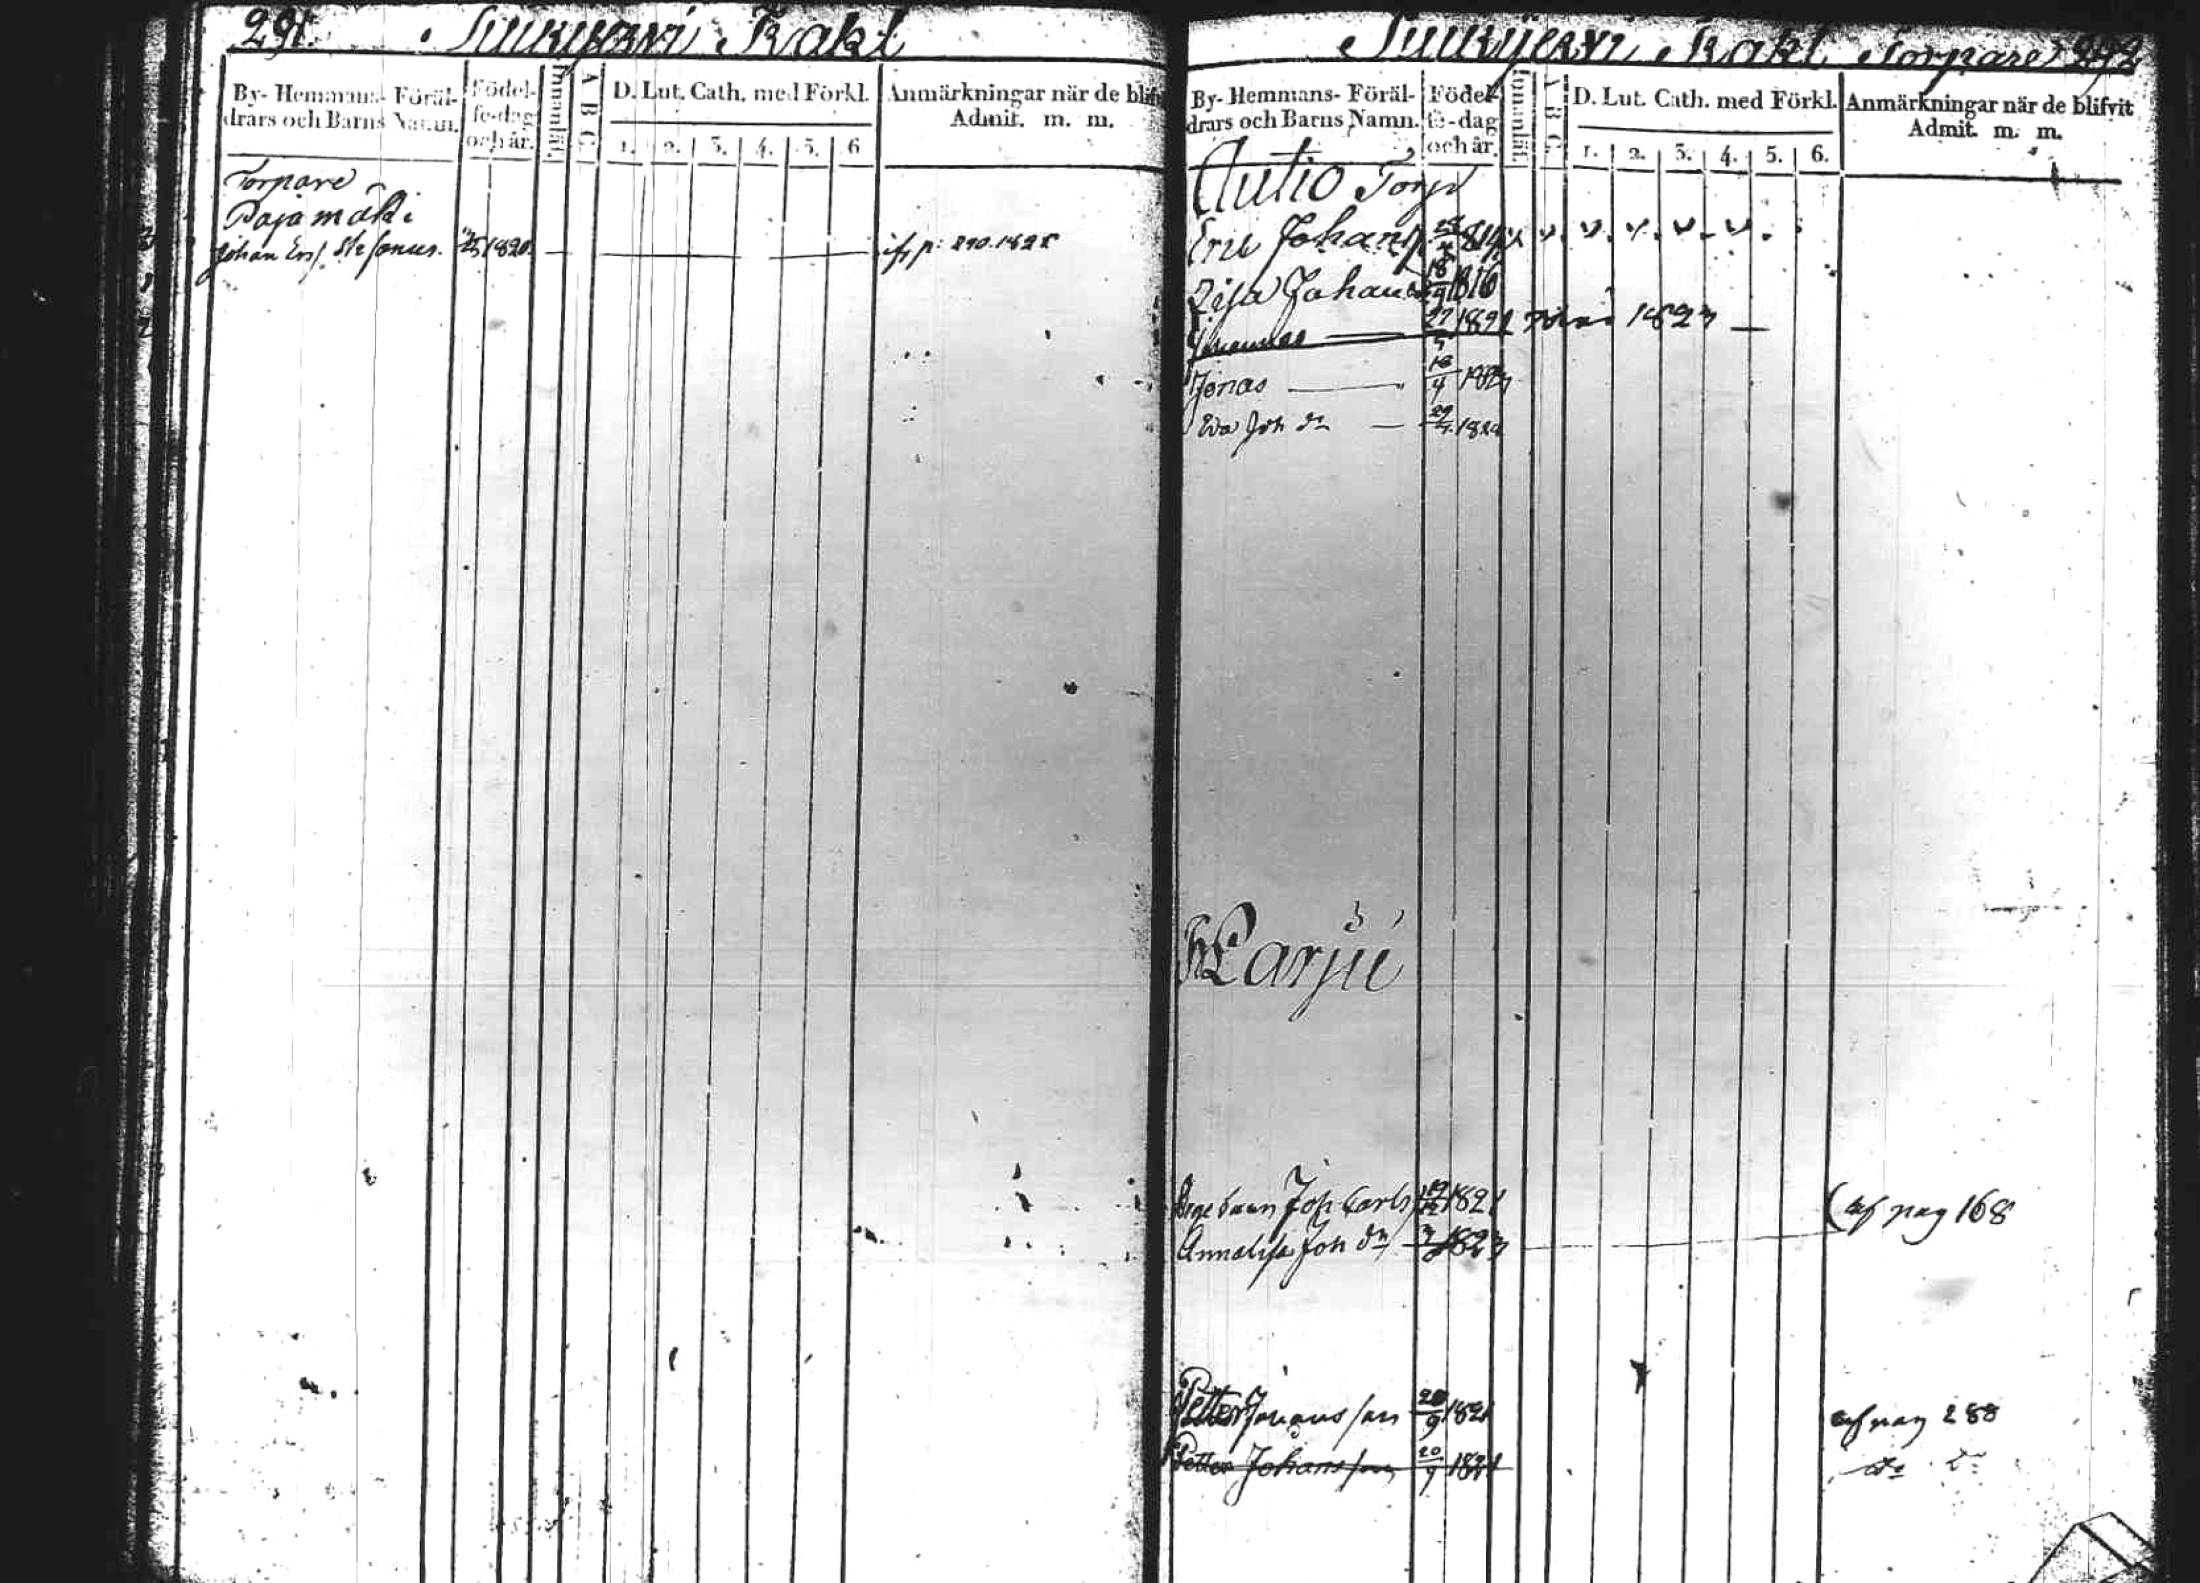 291. Kakl
By- Hemmans- Föräl-
drars och Barns Namn.
Födel-
se-dag
och år.
Innanläs.
A B C.
D. Lut. Cath. med Förkl.
1. 2. 3. 4. 5. 6
Anmärkningar när de blifv
Admit. m. m.
Torpare
Pajamäki
Johan Ers. 1820. p: 290. 1825
Kakl Torpare 292
By- Hemmans- Föräl-
drars och Barns Namn.
Födel-
se-dag
och år.
Innanläs.
A B C.
D. Lut. Cath. med Förkl.
1. 2. 3. 4. 5. 6.
Anmärkningar när de blifvit
Admit. m. m.
Autio Torp
Eric Johans
Lisa Johans 18/9 1816
Johannes 27 1821 1823
Jonas 18/4
Eva Joh dr 29 1824
Harju
Joh Carls 1821 (af pag 168
Annalisa Joh dr 1823
Petter Johansson 20/9 1821 af pag 288
Petter Johansson 20/9 1821 do do